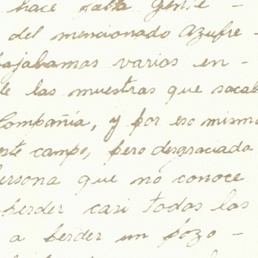 hace falta Gente -
del mencionado Azufre -
bajabamos varios en -
de las muestras que sacab
Compañía, y por eso mismo
este campo, pero desgraciada
persona que no conoce
perder casi todas las
a perder un pózo -